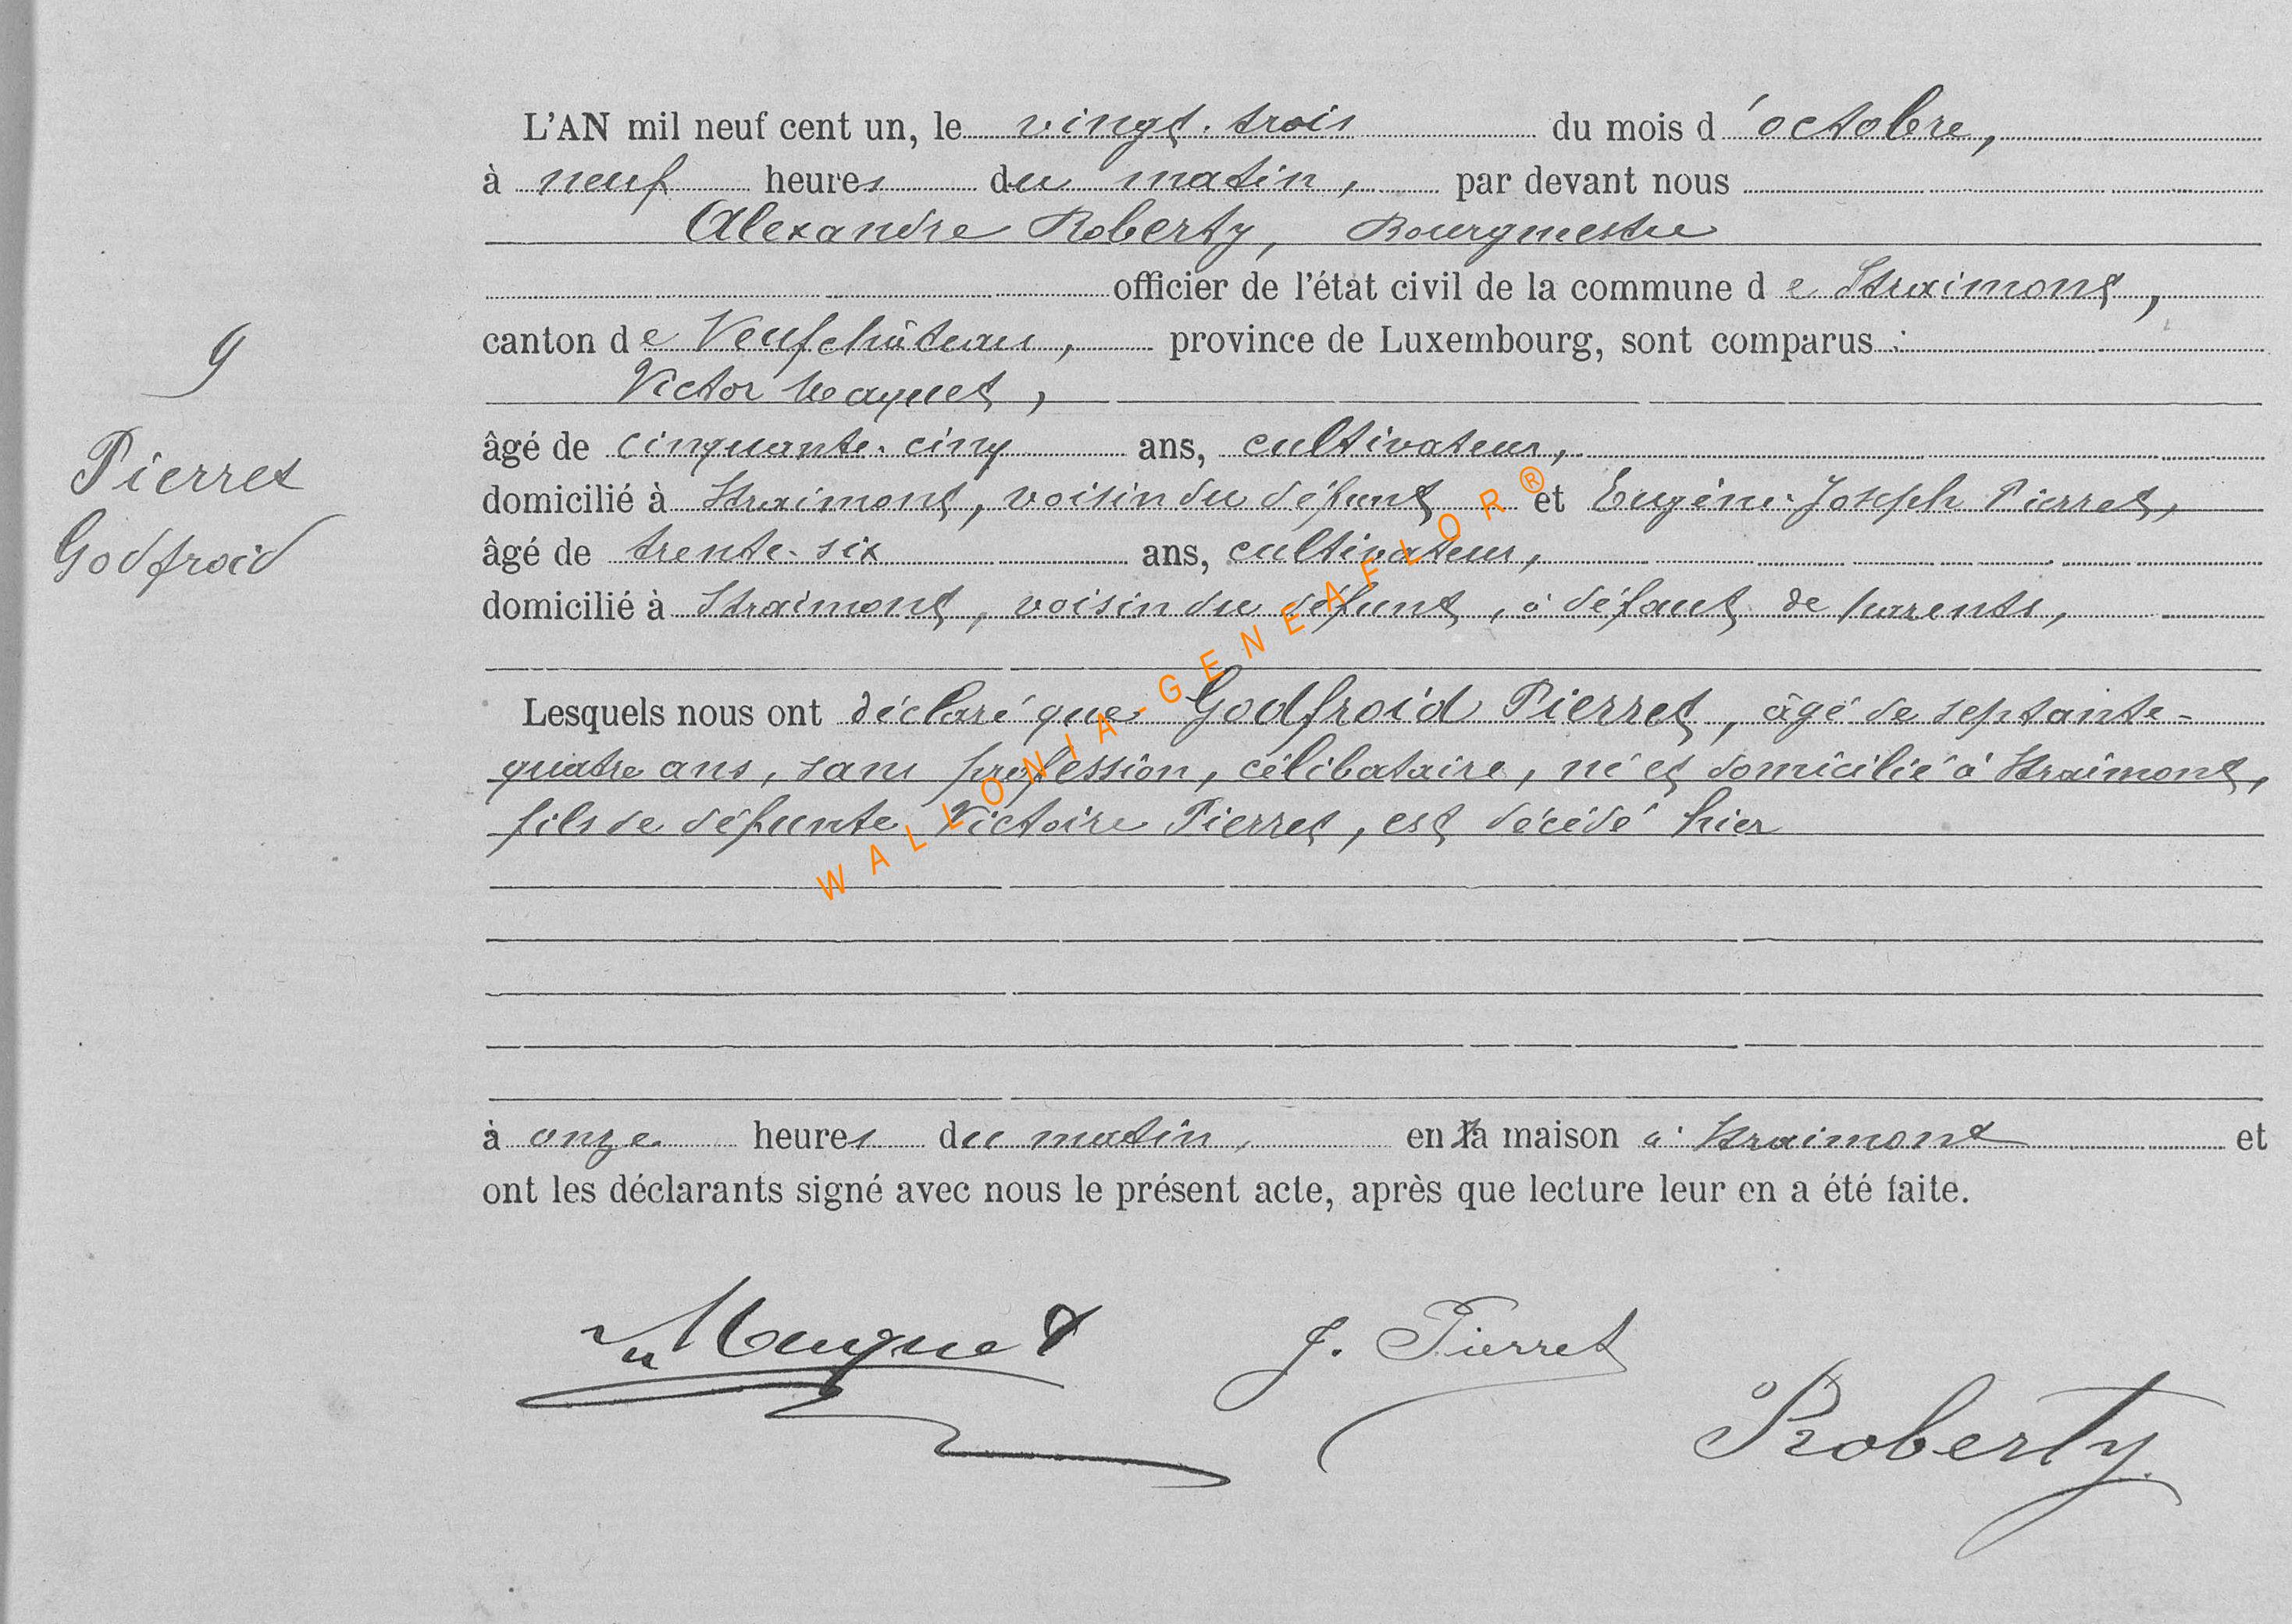 L'AN mil neuf cent un, le vingt-trois du mois d'octobre,
à neuf heures du matin, par devant nous
Alexandre Roberty, Bourgmestre
officier de l'état civil de la commune de Straimont,
canton de Neufchâteau, province de Luxembourg, sont comparus :
Victor Maquet,
âgé de cinquante-cinq ans, cultivateur,
domicilié à Straimont, voisin du défunt et Eugène-Joseph Pierret,
âgé de trente-six ans, cultivateur,
domicilié à Straimont, voisin du défunt, à défaut de parents,
Lesquels nous ont déclaré que Godfroid Pierret, âgé de septante-
quatre ans, sans profession, célibataire, né et domicilié à Straimont,
fils de défunte Victoire Pierret, est décédé hier
à onze heures du matin, en sa maison à Straimont et
ont les déclarants signé avec nous le présent acte, après que lecture leur en a été faite.
9
Pierret
Godfroid
Maquet J. Pierret
Roberty
WALLONIA-GENEAFLOR®